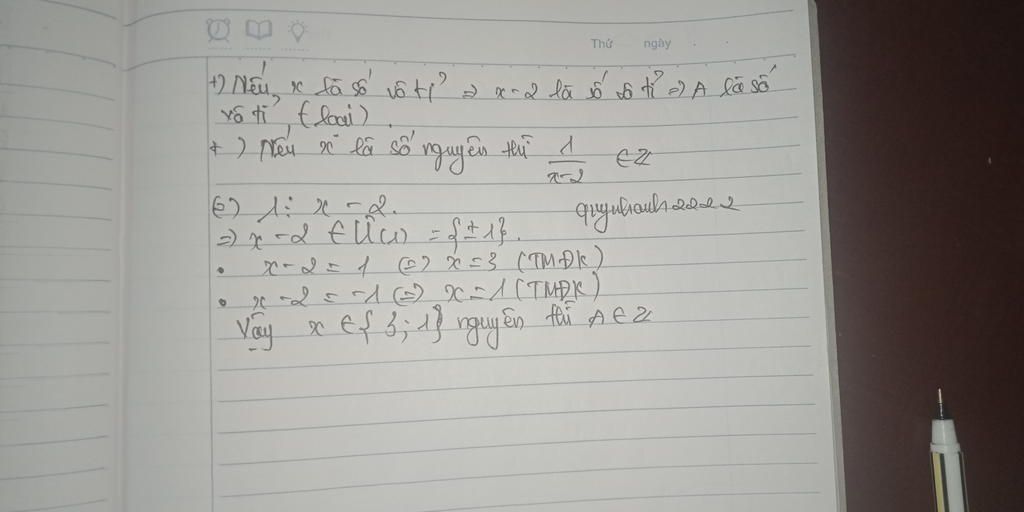 Thứ ngày
+) Nếu x là số vô tỉ => x-2 là số vô tỉ => A là số
vô tỉ (loại).
+) Nếu x là số nguyên thì 1/(x-2) ∈ Z
(=) 1 ⋮ x - 2.
quynhanh2222
=> x - 2 ∈ Ư(1) = {±1}.
• x - 2 = 1 (=) x = 3 (TMĐK)
• x - 2 = -1 (=) x = 1 (TMĐK)
Vậy x ∈ {3; 1} nguyên thì A ∈ Z